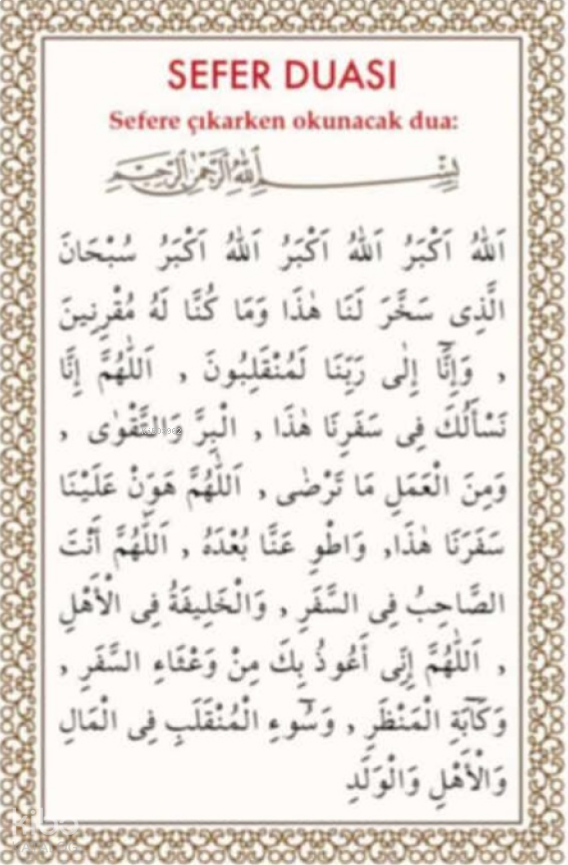 SEFER DUASI
Sefere çıkarken okunacak dua:
بِسْــــمِ اللهِ الرَّحْمٰنِ الرَّحِيمِ
اَللهُ اَكْبَرُ اَللهُ اَكْبَرُ اَللهُ اَكْبَرُ سُبْحَانَ
الَّذِى سَخَّرَ لَنَا هٰذَا وَمَا كُنَّا لَهُ مُقْرِنِينَ
, وَإِنَّٓا إِلٰى رَبِّنَا لَمُنْقَلِبُونَ , اَللّٰهُمَّ إِنَّا
نَسْأَلُكَ فِى سَفَرِنَا هٰذَا , الْبِرَّ وَالتَّقْوٰى ,
وَمِنَ الْعَمَلِ مَا تَرْضٰى , اَللّٰهُمَّ هَوِّنْ عَلَيْنَا
سَفَرَنَا هٰذَا, وَاطْوِ عَنَّا بُعْدَهُ , اَللّٰهُمَّ أَنْتَ
الصَّاحِبُ فِى السَّفَرِ , وَالْخَلِيفَةُ فِى الْأَهْلِ
, اَللّٰهُمَّ إِنِّى أَعُوذُ بِكَ مِنْ وَعْثَاءِ السَّفَرِ ,
وَكَآبَةِ الْمَنْظَرِ , وَسُٓوءِ الْمُنْقَلَبِ فِى الْمَالِ
وَالْأَهْلِ وَالْوَلَدِ